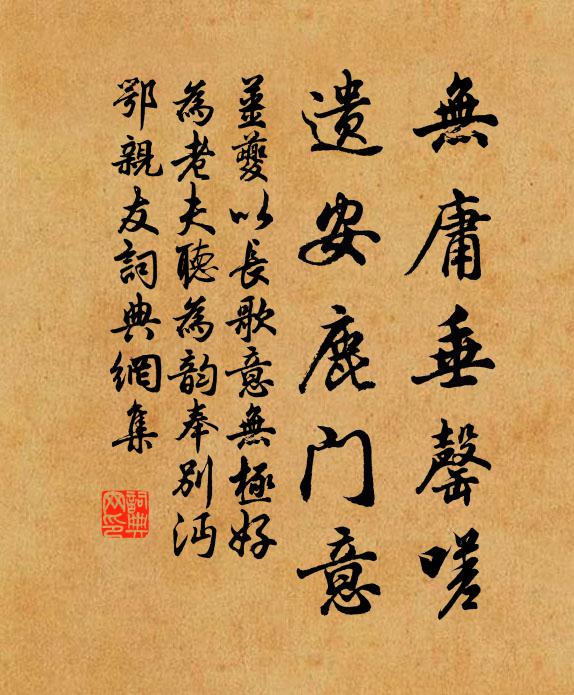 無庸垂罄嗟
遺安鹿門意
姜夔以長歌意無極好
為老夫聽為韵奉別沔
鄂親友詞典網集
詞典網印